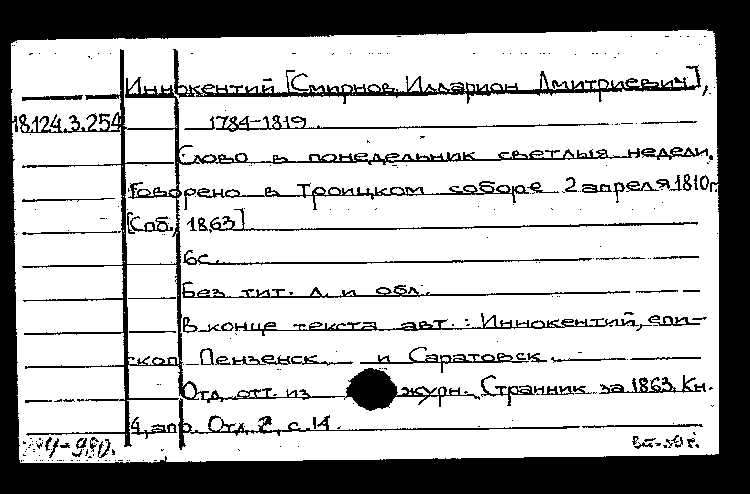 Иннокентий [Смирнов, Илларион Дмитриевич],
18.124.3.254 1784-1819.
Слово в понедельник светлыя недели.
Говорено в Троицком соборе 2 апреля 1810г.
[Спб., 1863]
6с.
Без тит. л. и обл.
В конце текста авт.: Иннокентий, епи-
скоп Пензенск. и Саратовск.
Отд. отт. из журн. Странник за 1863. Кн.
4, апр. Отд. 2, с. 14.